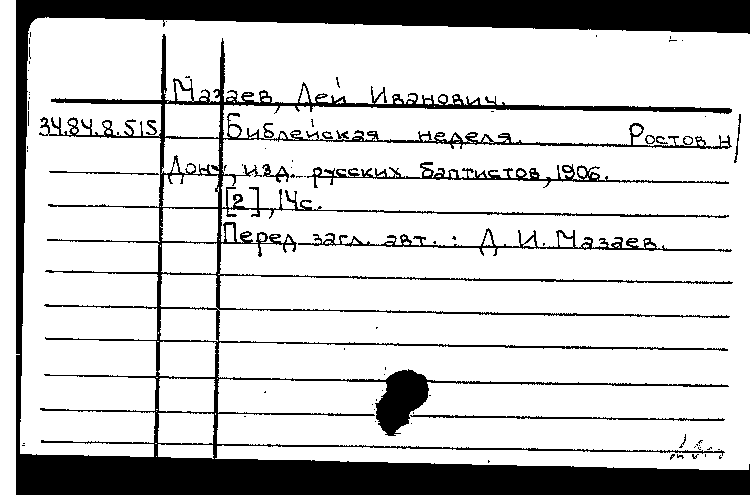 Мазаев, Дей Иванович.
34.84.8.515 Библейская неделя. Ростов н/
Дону, изд. русских баптистов, 1906.
[2], 14с.
Перед загл. авт.: Д. И. Мазаев.